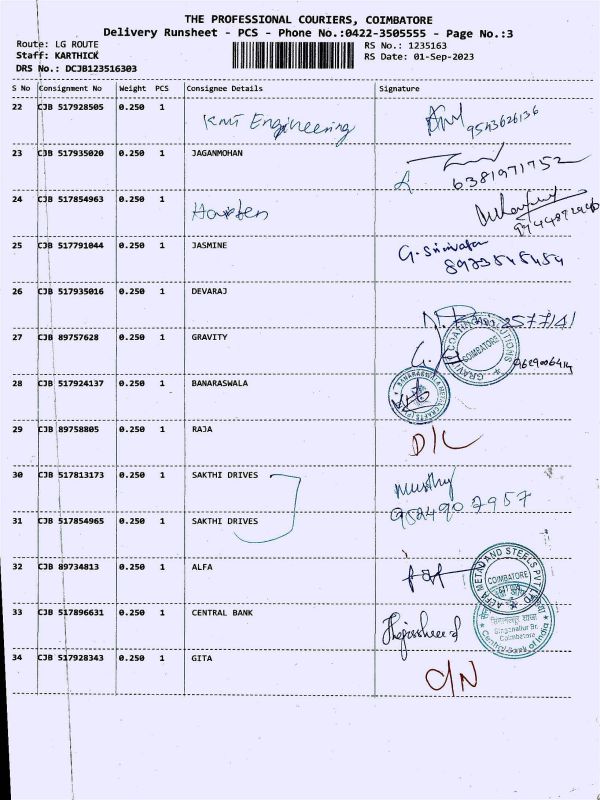 THE PROFESSIONAL COURIERS, COIMBATORE
Delivery Runsheet - PCS - Phone No.:0422-3505555 - Page No.:3
Route: LG ROUTE RS No.: 1235163
Staff: KARTHICK RS Date: 01-Sep-2023
DRS No.: DCJB123516303
S No Consignment No Weight PCS Consignee Details Signature
22 CJB 517928505 0.250 1 KMT Engineering 9543626136
23 CJB 517935020 0.250 1 JAGANMOHAN 6381971752
24 CJB 517854963 0.250 1
25 CJB 517791044 0.250 1 JASMINE G. Srinivasan
26 CJB 517935016 0.250 1 DEVARAJ
27 CJB 89757628 0.250 1 GRAVITY GRAVITY COATING SOLUTIONS COIMBATORE
28 CJB 517924137 0.250 1 BANARASWALA
29 CJB 89758805 0.250 1 RAJA D/L
30 CJB 517813173 0.250 1 SAKTHI DRIVES Murthy
31 CJB 517854965 0.250 1 SAKTHI DRIVES 9524907957
32 CJB 89734813 0.250 1 ALFA ALFA METAL AND STEELS PVT LTD COIMBATORE
33 CJB 517896631 0.250 1 CENTRAL BANK Singanallur Br. Coimbatore Central Bank of India
34 CJB 517928343 0.250 1 GITA C/N